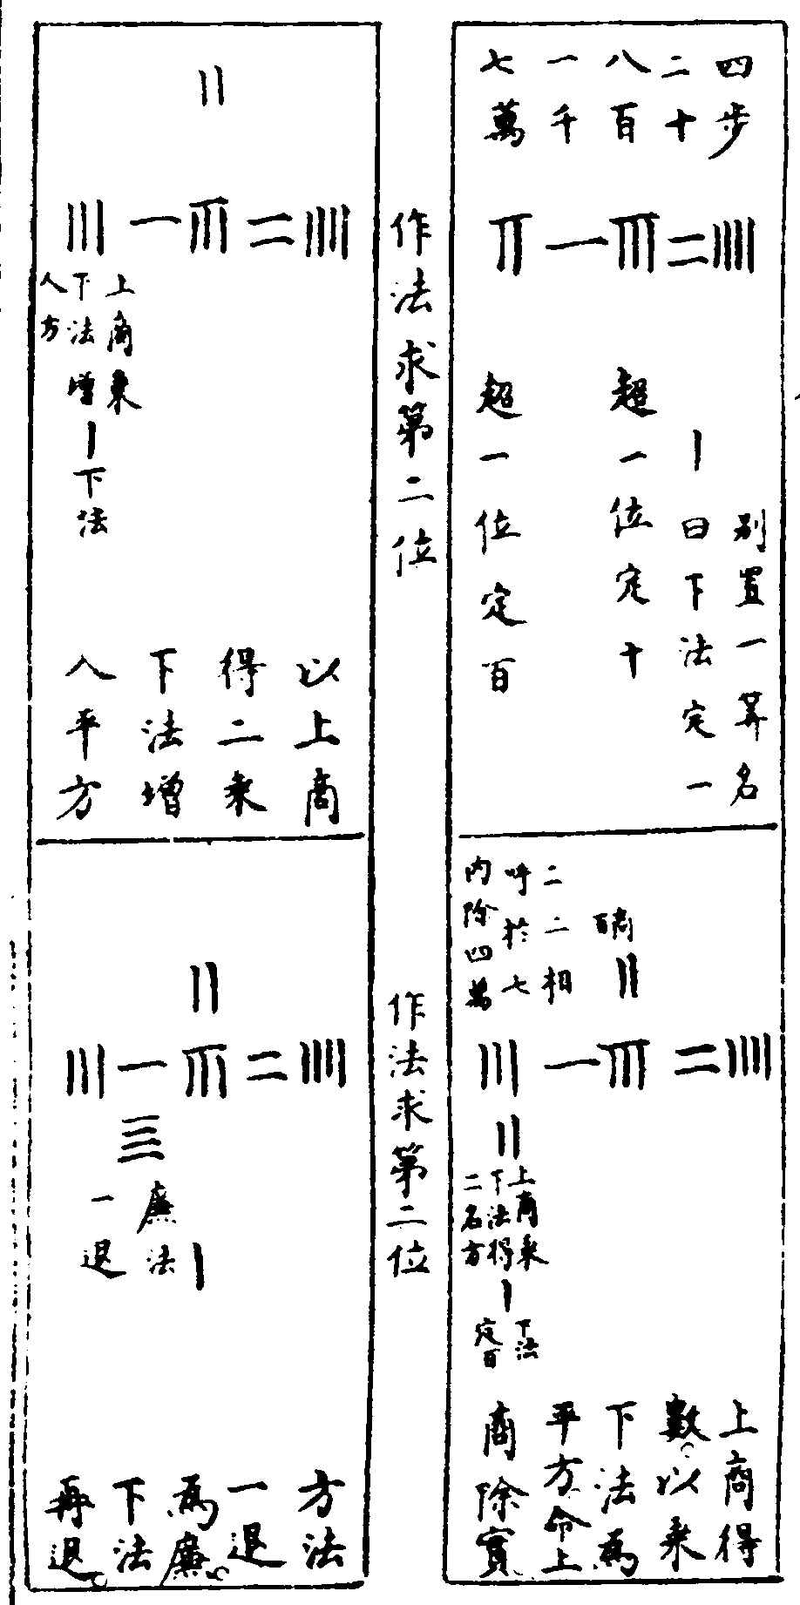 四步
二十
八百
一千
七萬
別置一算名
曰下法定一
超一位定十
超一位定百
商百
二二相
呼於七
內除四萬
上商乘
下法得
二名方
下法
定百
上商得
數以乘
下法為
平方命上
商除實
作法求第二位
作法求第二位
上商乘
下法增
入方
下法
以上商
得二乘
下法增
入平方
廉法
一退
方法
一退
為廉
下法
再退